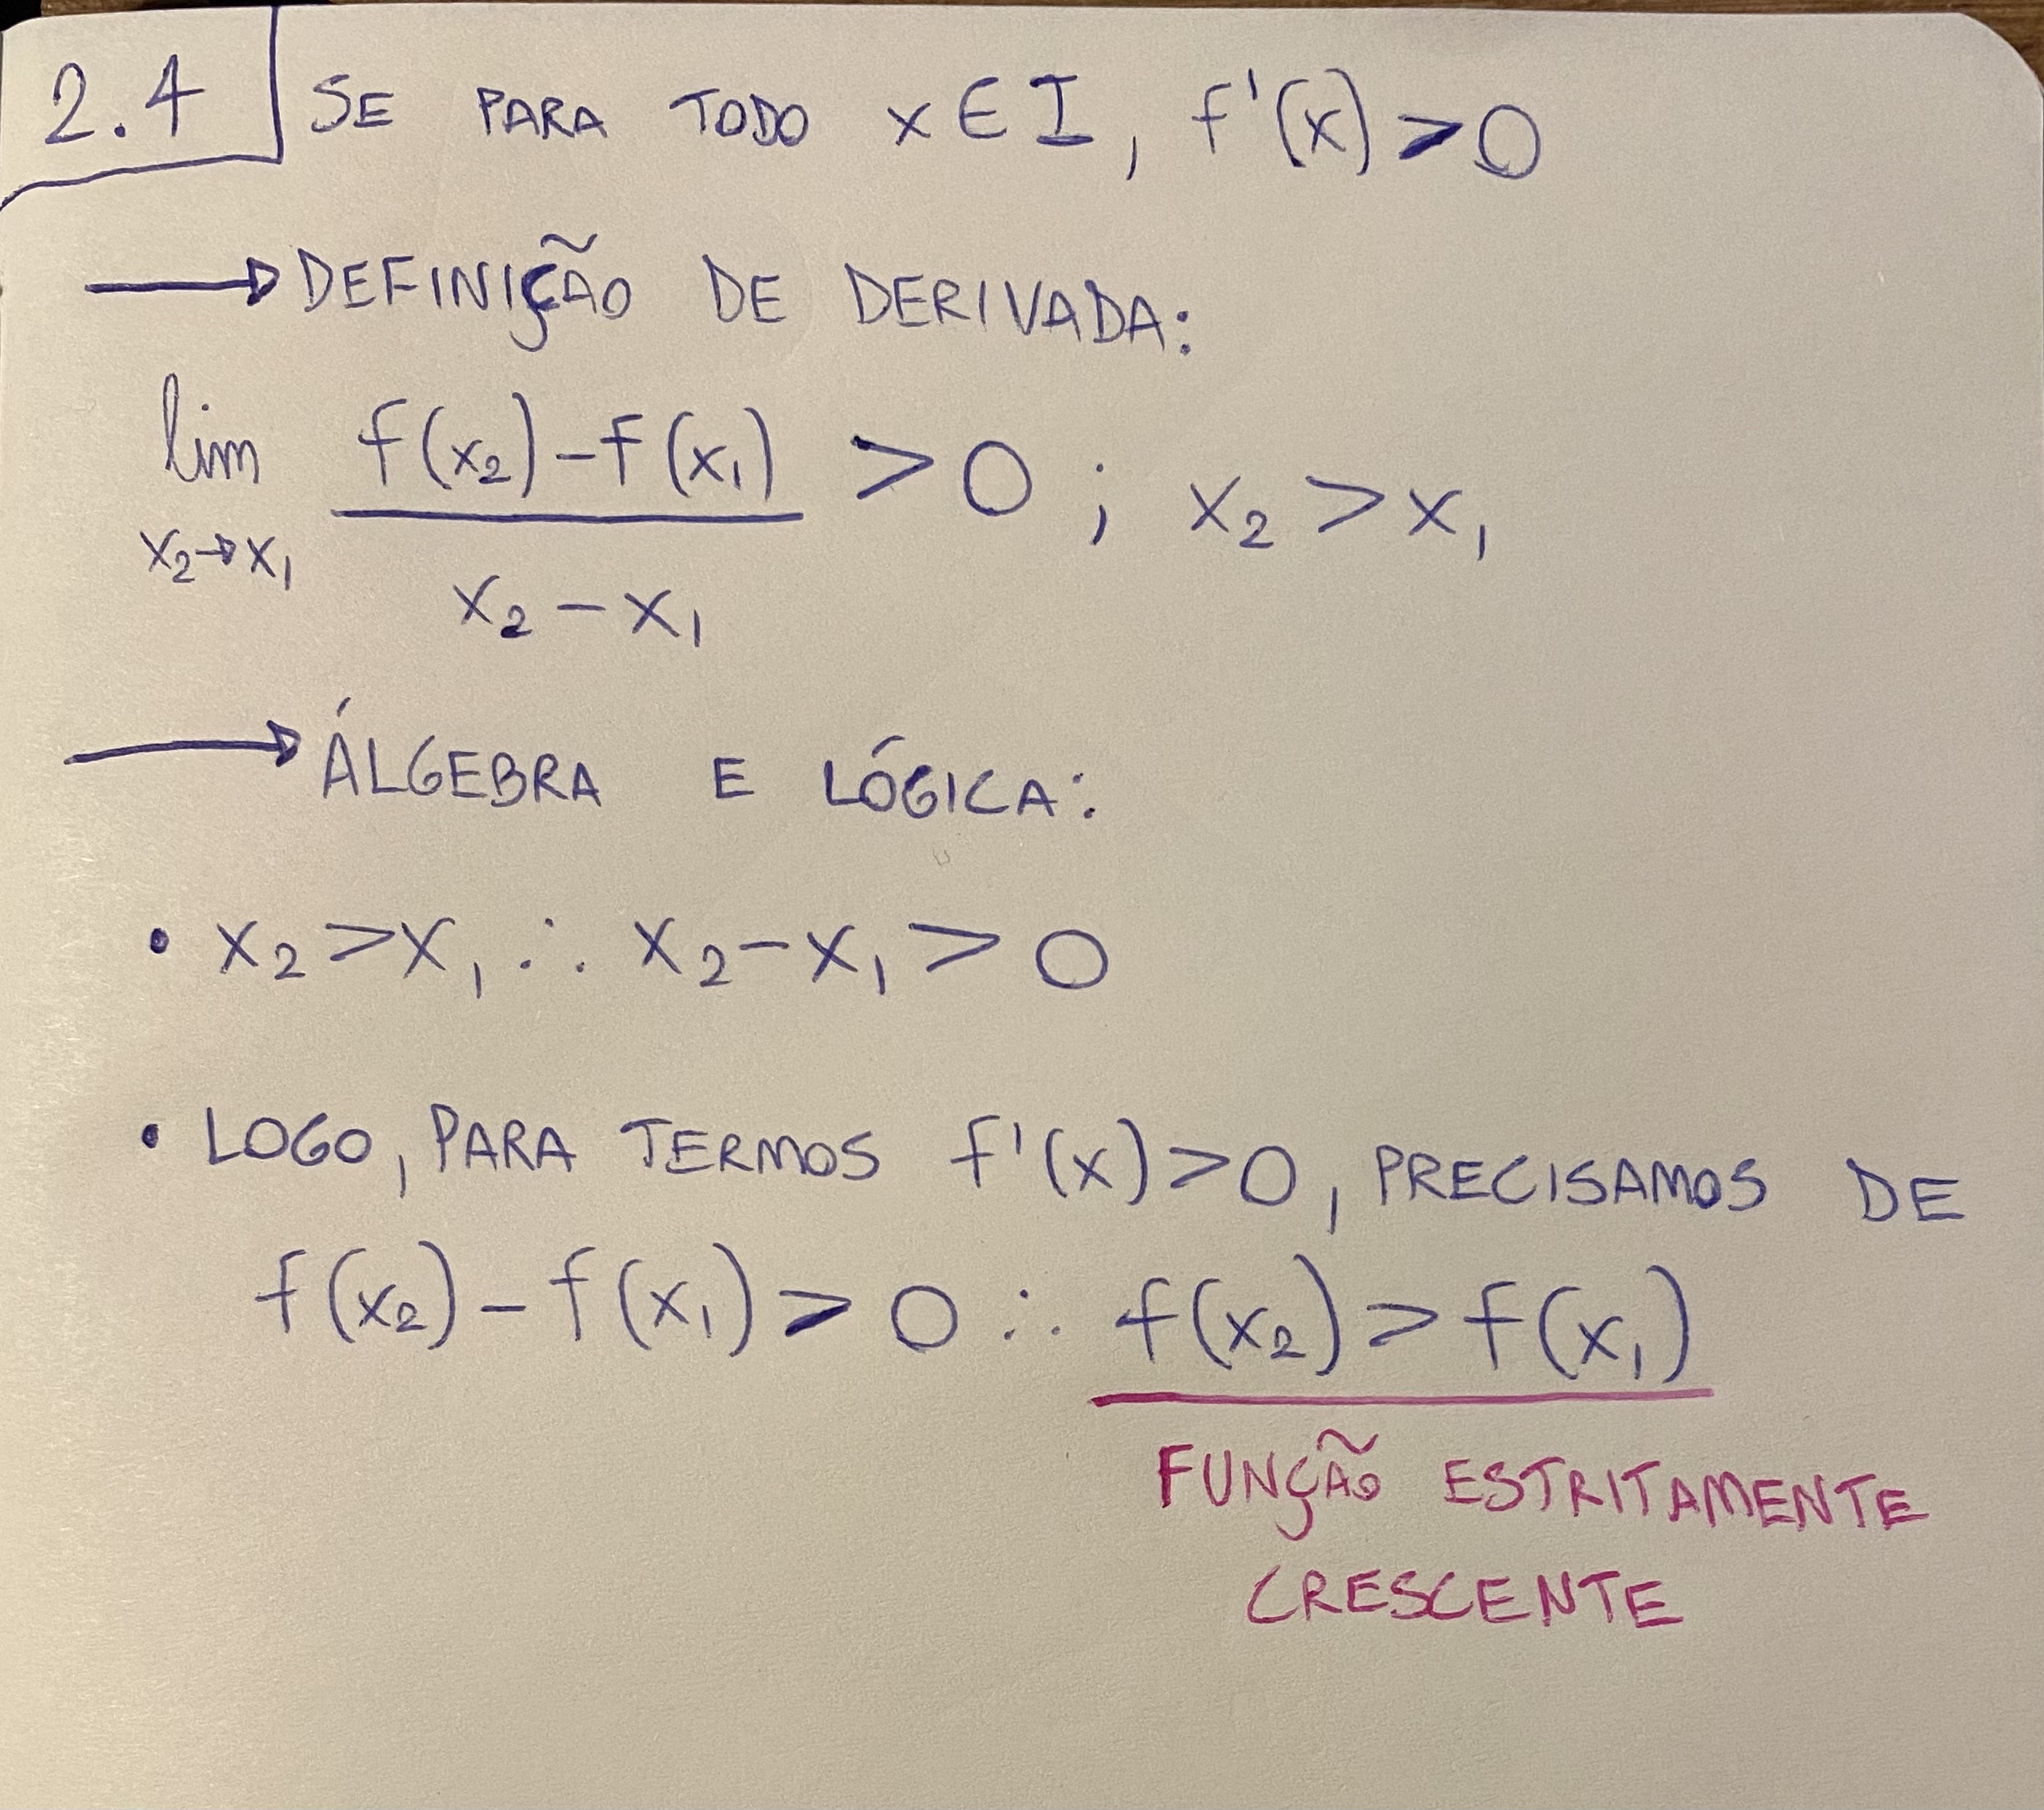 2.4 SE PARA TODO x ∈ I, f'(x) > 0
→ DEFINIÇÃO DE DERIVADA:
lim f(x₂) - f(x₁) > 0 ; x₂ > x₁
x₂→x₁ x₂ - x₁
→ ÁLGEBRA E LÓGICA:
• x₂ > x₁ ∴ x₂ - x₁ > 0
• LOGO, PARA TERMOS f'(x) > 0, PRECISAMOS DE
f(x₂) - f(x₁) > 0 ∴ f(x₂) > f(x₁)
FUNÇÃO ESTRITAMENTE
CRESCENTE